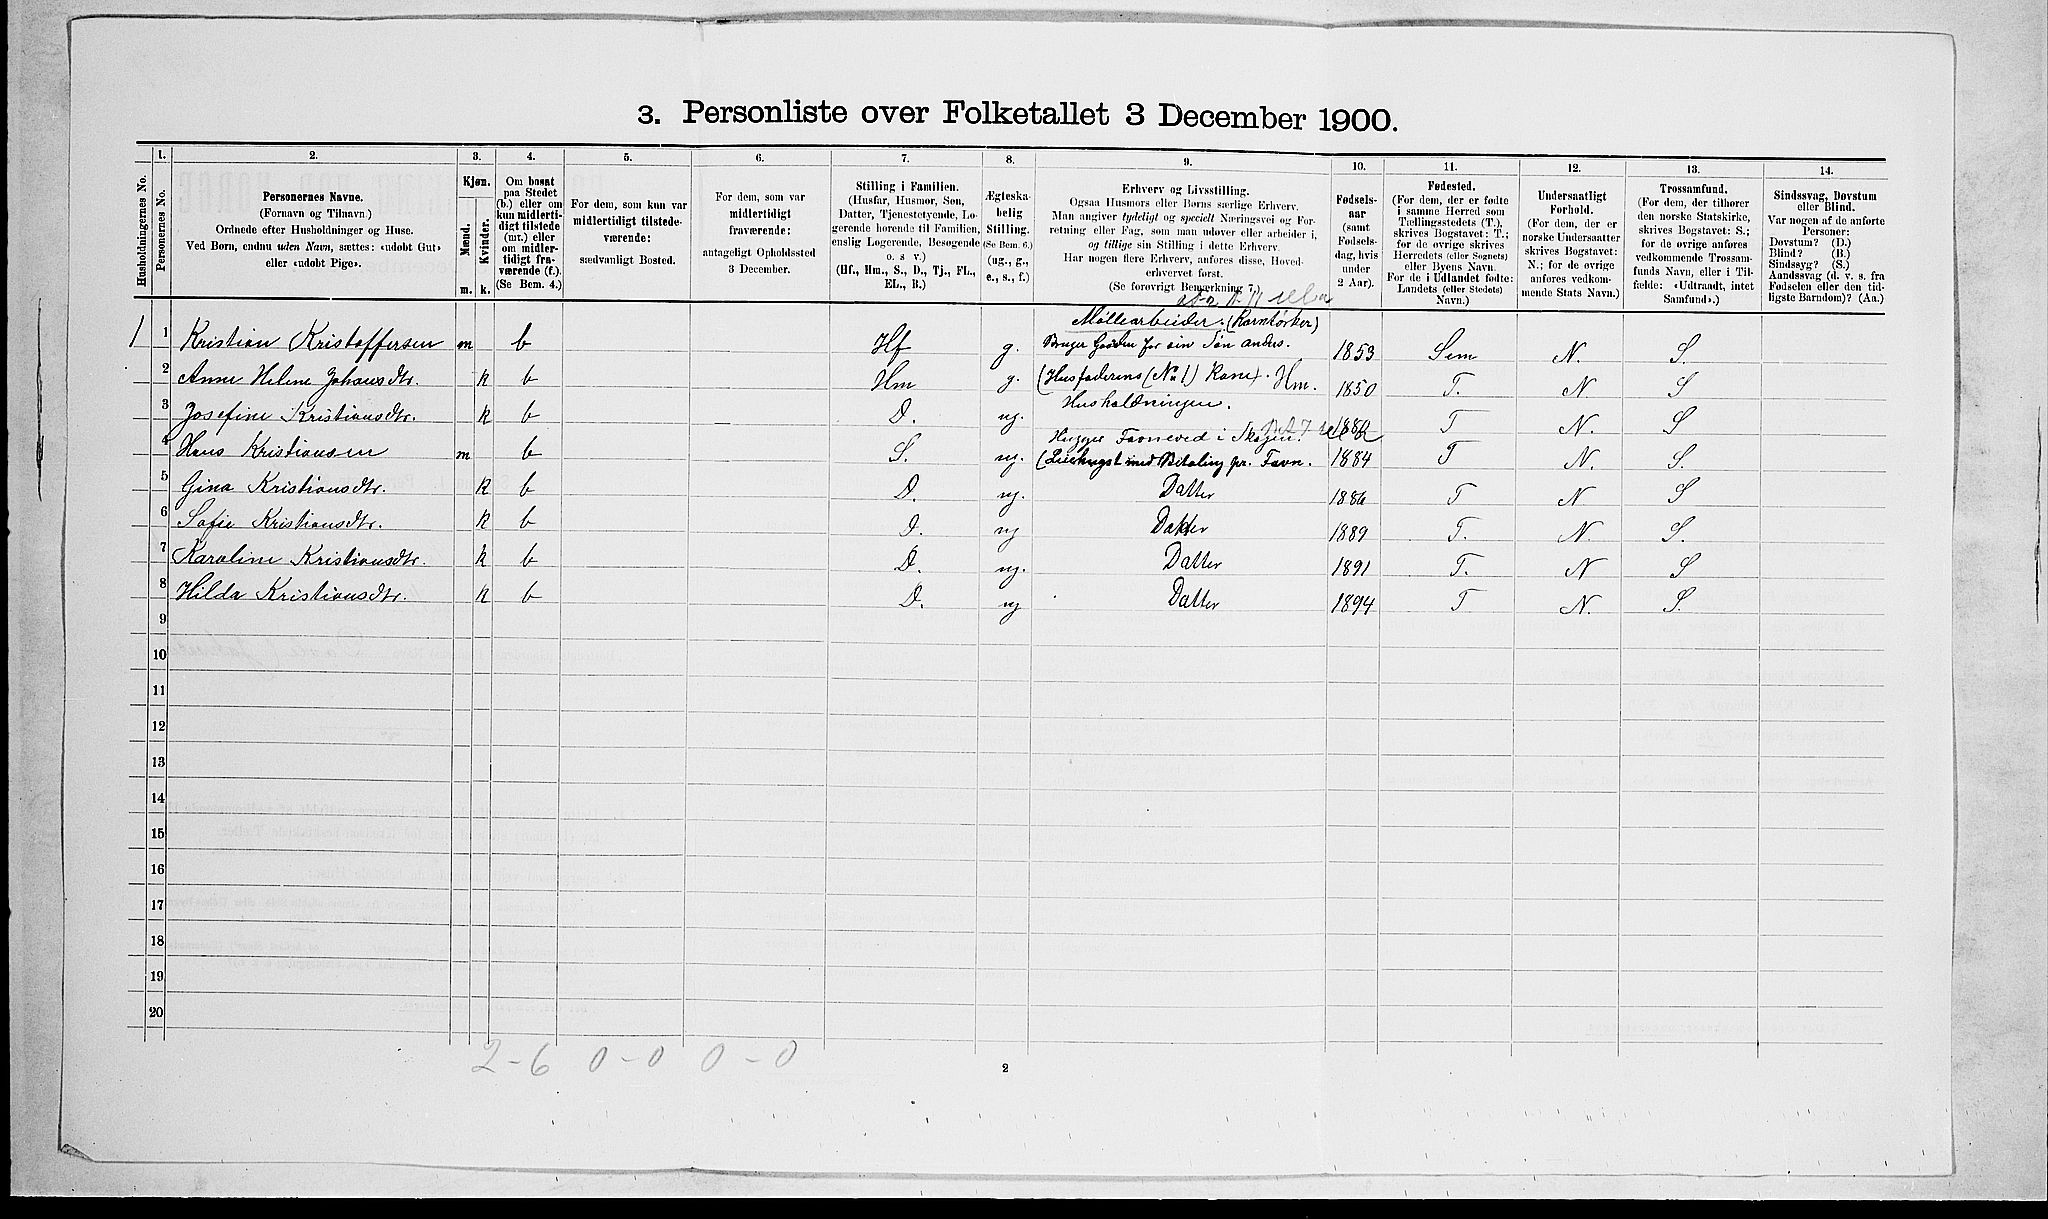 3. Personliste over Folketallet 3 December 1900.
1. 2. 3. 4. 5. 6. 7. 8. 9. 10. 11. 12. 13. 14.
Husholdningernes No.
Personernes No.
Personernes Navne.
(Fornavn og Tilnavn.)
Ordnede efter Husholdninger og Huse.
Ved Børn, endnu uden Navn, sættes: «udøbt Gut»
eller «udøbt Pige».
Kjøn.
Mænd.
Kvinder.
m. k.
Om bosat
paa Stedet
(b.) eller om
kun midlerti-
digt tilstede
(mt.) eller
om midler-
tidigt fra-
værende (f.).
(Se Bem. 4.)
For dem, som kun var
midlertidigt tilstede-
værende:
sædvanligt Bosted.
For dem, som var
midlertidigt
fraværende:
antageligt Opholdssted
3 December.
Stilling i Familien.
(Husfar, Husmor, Søn,
Datter, Tjenestetyende, Lo-
gerende hørende til Familien,
enslig Logerende, Besøgende
o. s. v.)
(Hf., Hm., S., D., Tj., FL.,
EL., B.)
Ægteska-
belig
Stilling.
(Se Bem. 6.)
(ug., g.,
e., s., f.)
Erhverv og Livsstilling.
Ogsaa Husmors eller Børns særlige Erhverv.
Man angiver tydeligt og specielt Næringsvei og For-
retning eller Fag, som man udøver eller arbeider i,
og tillige sin Stilling i dette Erhverv.
Har nogen flere Erhverv, anføres disse, Hoved-
erhvervet først.
(Se forøvrigt Bemerkning 7.)
Fødsels-
aar
(samt
Fødsels-
dag, hvis
under
2 Aar).
Fødested.
(For dem, der er fødte
i samme Herred som
Tællingsstedets (T.),
skrives Bogstavet: T.;
for de øvrige skrives
Herredets (eller Sognets)
eller Byens Navn.
For de i Udlandet fødte:
Landets (eller Stedets)
Navn.)
Undersaatligt
Forhold.
(For dem, der er
norske Undersaatter
skrives Bogstavet:
N.; for de øvrige
anføres vedkom-
mende Stats Navn.)
Trossamfund.
(For dem, der tilhører
den norske Statskirke,
skrives Bogstavet: S.;
for de øvrige anføres
vedkommende Trossam-
funds Navn, eller i Til-
fælde: «Udtraadt, intet
Samfund».)
Sindssvag, Døvstum
eller Blind.
Var nogen af de anførte
Personer:
Døvstum? (D.)
Blind? (B.)
Sindssyg? (S.)
Aandssvag (d. v. s. fra
Fødselen eller den tid-
ligste Barndom)? (Aa.)
Møllearbeider. (Korntørker)
1 1 Kristian Kristoffersen m b Hf g. Bruger Gården for sin Søn anders. 1853 Sem N. S.
2 Anne Helene Johansdtr. k b Hm g. (Husfaderens (No 1) Kone). Hm. 1850 T. N S
Husholdningen.
3 Josefine Kristiansdtr. k b D. ug. 1882 T N. S
Hugger Favneved i Skogen.
4 Hans Kristiansen m b S. ug. med Betaling pr. Favn. 1884 T N. S.
5 Gina Kristiansdtr. k b D. ug. Datter 1886 T N S
6 Sofie Kristiansdtr. k b D. ug Datter 1889 T. N. S.
7 Karoline Kristiansdtr. k b D. ug. Datter 1891 T. N S
8 Hilda Kristiansdtr. k b D. ug Datter 1894 T N. S.
9
10
11
12
13
14
15
16
17
18
19
20
2-6 0-0 0-0
2